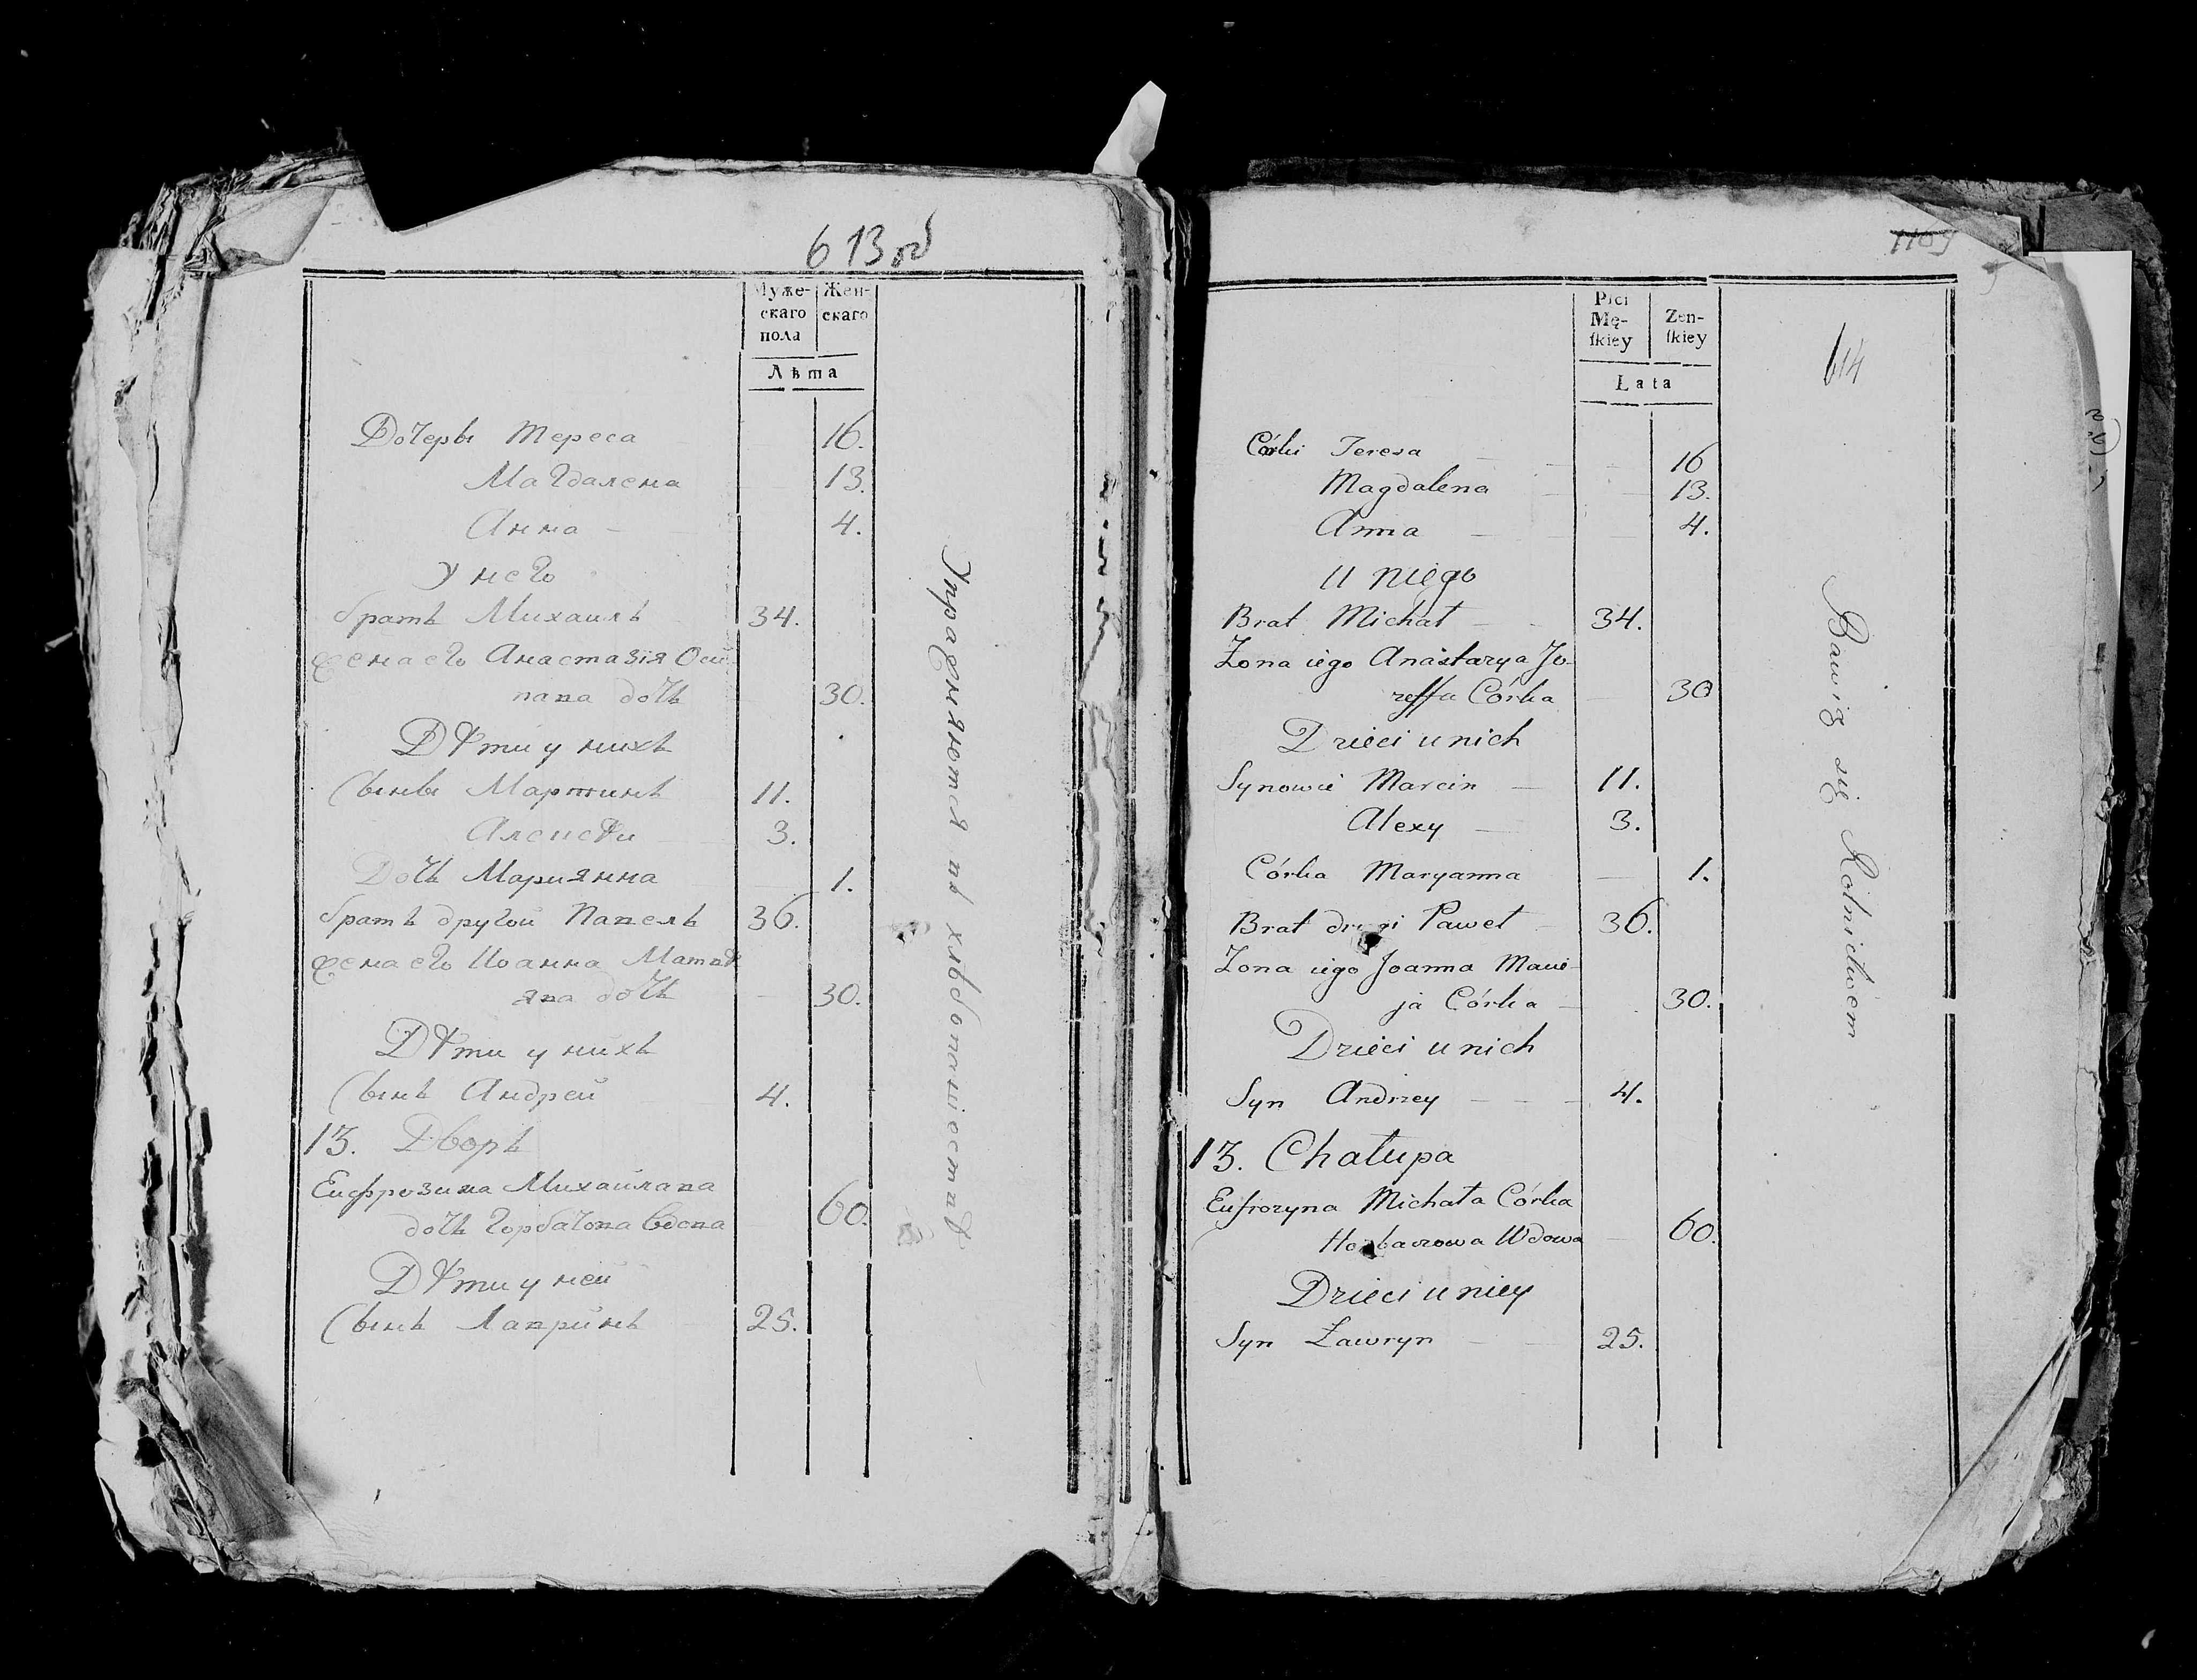 613 об
Муже-
скаго
пола
Жен-
скаго
Лѣта
Дочеры Тереса 16.
Магдалена 13.
Анна 4.
У него
братъ Михаилъ 34.
жена его Анастазія Оси
пава дочь 30.
Дѣти у нихъ
Сыны Мартинъ 11.
Алексѣи 3.
Дочь Мариянна 1.
братъ другой Павелъ 36.
жена его Иоанна Матвѣ
ява дочь 30.
Дѣти у нихъ
Сынъ Андрей 4.
13. Дворъ
Еифрозина Михайлава
дочь Горбачова вдова 60.
Дѣти у ней
Сынъ Лавринъ 25.
Упражняются въ хлѣбопашествѣ
1109
614
Płci
Mę-
ſkiey
Zen-
ſkiey
Lata
Córki Teresa 16
Magdalena 13.
Anna 4.
U niego
Brat Michał 34.
Zona iego Anastazya Jo-
zeffa Córka 30
Dzieci u nich
Synowie Marcin 11.
Alexy 3.
Córka Maryanna 1.
Brat drugi Paweł 36.
Zona iego Joanna Macie-
ja Córka 30.
Dzieci u nich
Syn Andrzey 4.
13. Chałupa
Eufrozyna Michała Córka
Horbaczowa Wdowa 60.
Dzieci u niey
Syn Ławryn 25.
Bawią się Rolnictwem